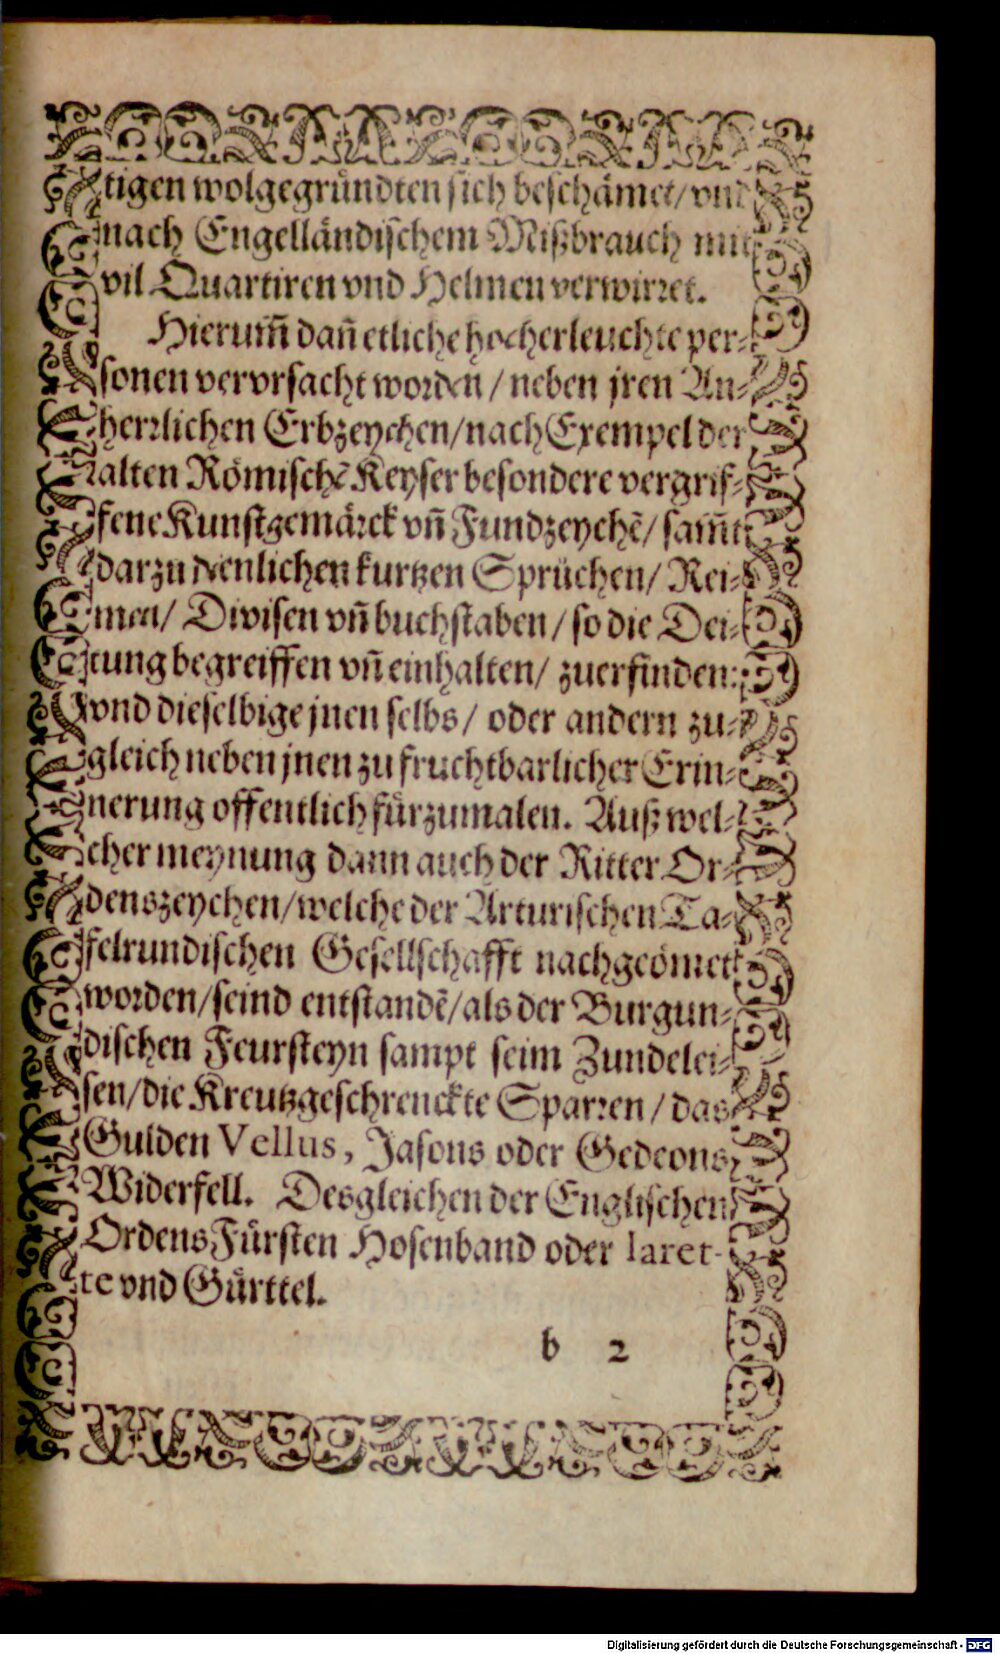 tigen wolgegründten sich beschämet/ vnd
nach Engelländischem Mißbrauch mit
vil Quartiren vnd Helmen verwirret.
Hierum̃ dañ etliche hocherleuchte per-
sonen vervrsacht worden / neben jren An-
herrlichen Erbzeychen/ nach Exempel der
alten Römischẽ Keyser besondere vergrif-
fene Kunstgemärck vñ Fundzeychẽ/ sam̃t
darzu dienlichen kurtzen Sprüchen/ Rei-
men/ Divisen vñ buchstaben / so die Dei-
tung begreiffen vñ einhalten/ zuerfinden:
vnd dieselbige jnen selbs/ oder andern zu-
gleich neben jnen zu fruchtbarlicher Erin-
nerung offentlich fürzumalen. Auß wel-
cher meynung dann auch der Ritter Or-
denszeychen/ welche der Arturischen Ta-
felrundischen Gesellschafft nachgeömet
worden/ seind entstandẽ/ als der Burgun-
dischen Feursteyn sampt seim Zundelei-
sen/ die Kreutzgeschrenckte Sparren / das
Gulden Vellus, Jasons oder Gedeons
Widerfell. Desgleichen der Englischen
Ordens Fürsten Hosenband oder Iaret-
te vnd Gürttel.
b 2
Digitalisierung gefördert durch die Deutsche Forschungsgemeinschaft - DFG